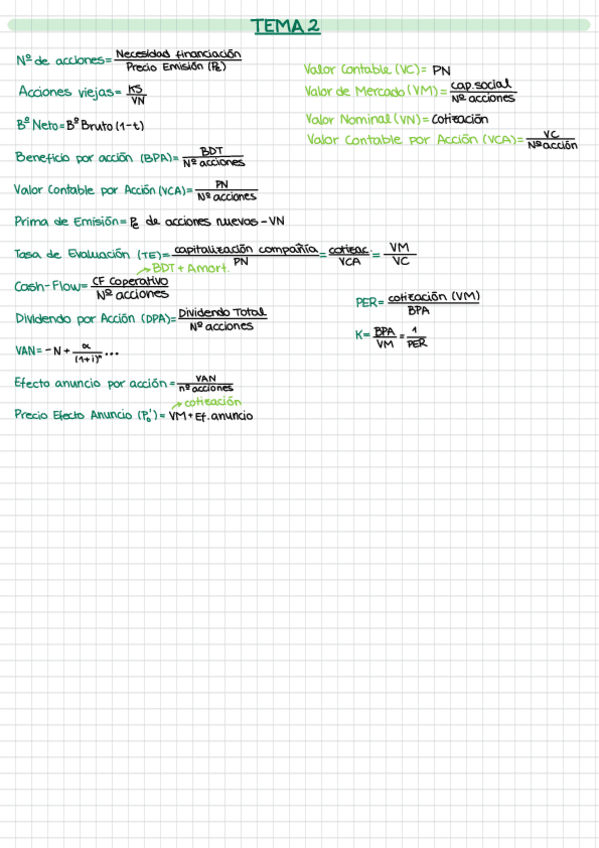 TEMA 2
Nº de acciones = Necesidad financiación / Precio Emisión (Pe)
Acciones viejas = KS / VN
Bº Neto = Bº Bruto (1-t)
Beneficio por acción (BPA) = BDT / Nº acciones
Valor Contable por Acción (VCA) = PN / Nº acciones
Prima de Emisión = Pe de acciones nuevas - VN
Tasa de Evaluación (TE) = capitalización compañía / PN = cotizac. / VCA = VM / VC
BDT + Amort.
Cash-Flow = CF Coperativo / Nº acciones
Dividendo por Acción (DPA) = Dividendo Total / Nº acciones
VAN = -N + α / (1+i)ⁿ ...
Efecto anuncio por acción = VAN / nº acciones
cotización
Precio Efecto Anuncio (P₀') = VM + Ef. anuncio
Valor Contable (VC) = PN
Valor de Mercado (VM) = cap. social / Nº acciones
Valor Nominal (VN) = Cotización
Valor Contable por Acción (VCA) = VC / Nº acción
PER = cotización (VM) / BPA
K = BPA / VM = 1 / PER